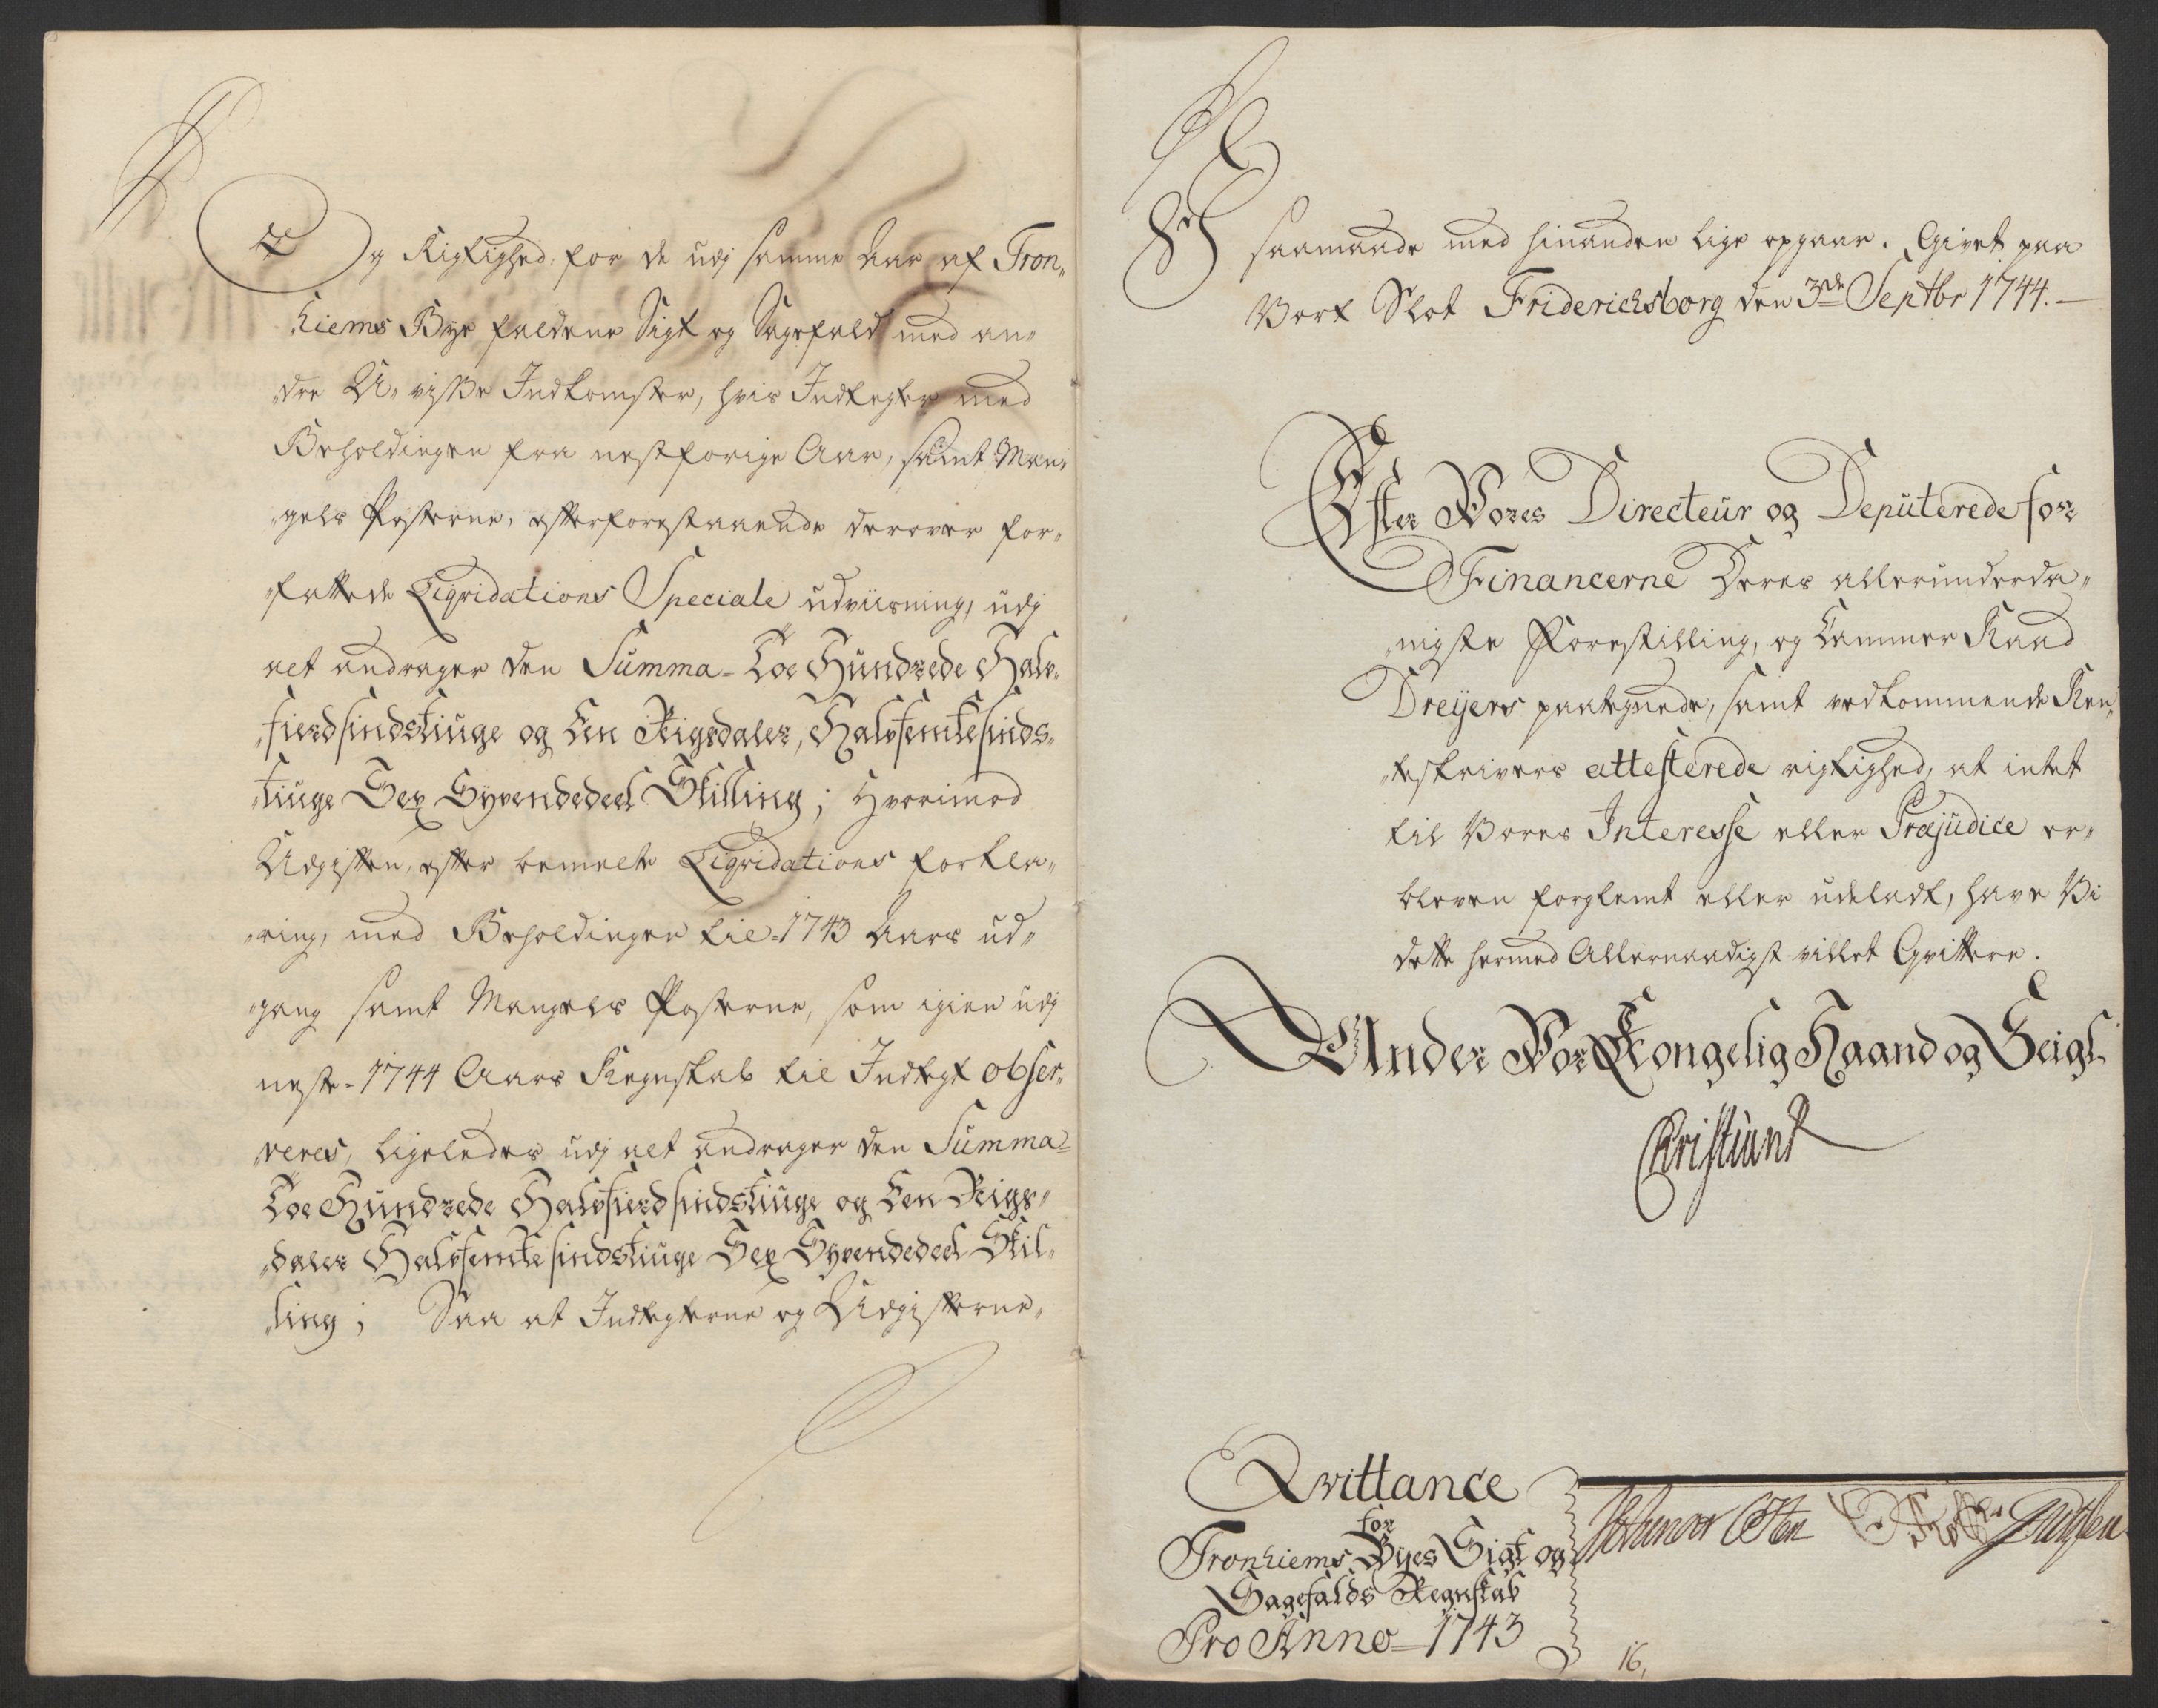 Og Rigtighed, for de udj samme Aar af Tron„
hiems Bye faldene Sigt og Sagefald med an„
„dre U„visse Indkomster, hvis Indtegter med
Beholdingen fra nestforige Aar, samt Man„
„gels Posterne, efterforestaaende derover for„
„fattede Liqvidations Speciale udviisning, udj
alt andrager den Summa - Toe Hundrede Halv„
„fierdsindstiuge og Een Rigsdaler, Halvfemtesinds„
„tiuge Sex Syvendedeel Skilling; Hvorimod
Udgiften, efter bemelte Liqvidations forkla„
„ring, med Beholdingen til 1743 Aars ud„
„gang samt Mangels Posterne, som igien udj
neste - 1744 Aars Regnskab til Indtegt obser„
„veres, ligeledes udj alt andrager den Summa
Toe Hundrede Halvfierdsindstiuge og Een Rigs„
„daler Halvfemtesindstiuge Sex Syvendedeel Skil„
„ling; Saa at Indtegterne og Udgifterne„
saamaade med hinanden lige opgaar. Givet paa
Vort Slot Friderichsborg den 3de Septbr 1744.
Efter Vores Directeur og Deputerede for
Financerne Deres allerunderda„
„nigste Forestilling, og Cammer Raad
Dreyers paategnede, samt vedkommende Ren„
„teskrivers attesterede rigtighed, at intet
til Vores Interesse eller Præjudice er„
bleven forglemt eller udeladt, have Vi
dette hermed Allernaadigst villet Qvittere.
Under Vor Kongelig Haand og Seigl.
Christian R
Qvittance
for
Tronhiems Byes Sigt og
Sagefalds Regnskab
Pro Anno - 1743
16,